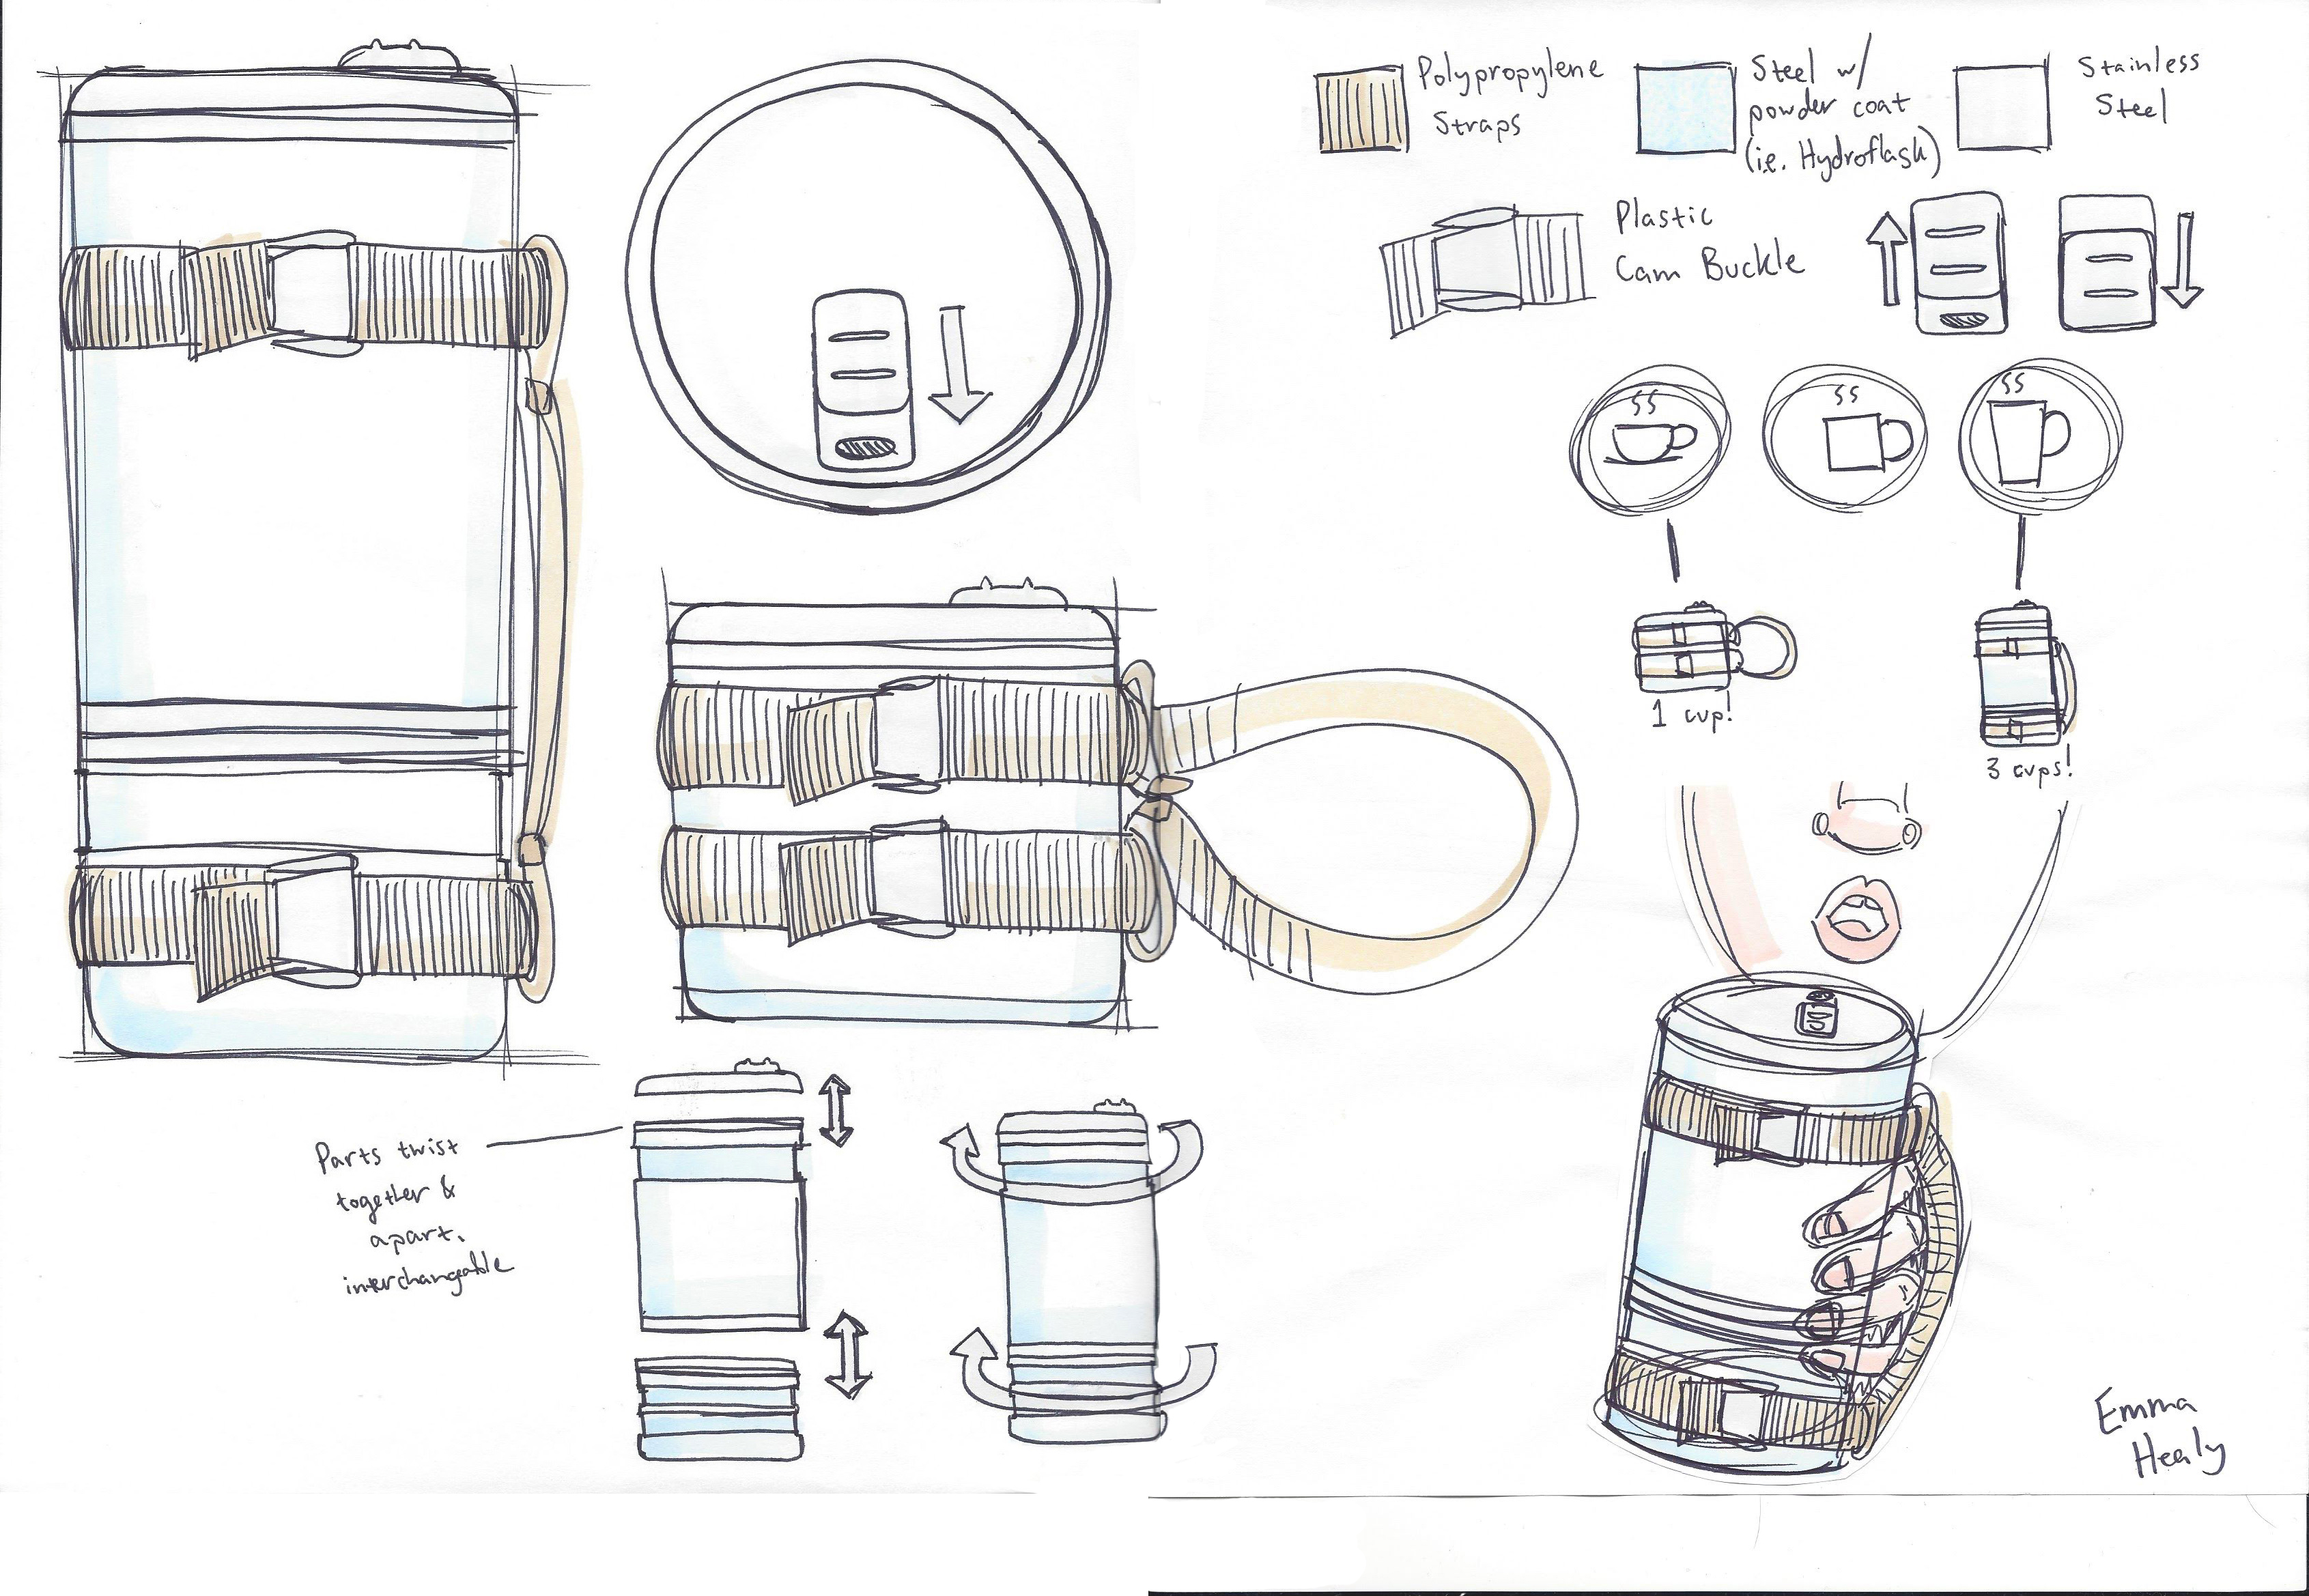 Polypropylene
Straps
Steel w/
powder coat
(ie. Hydroflask)
Stainless
Steel
Plastic
Cam Buckle
1 cup!
3 cups!
Parts twist
together &
apart.
interchangeable
Emma
Healy